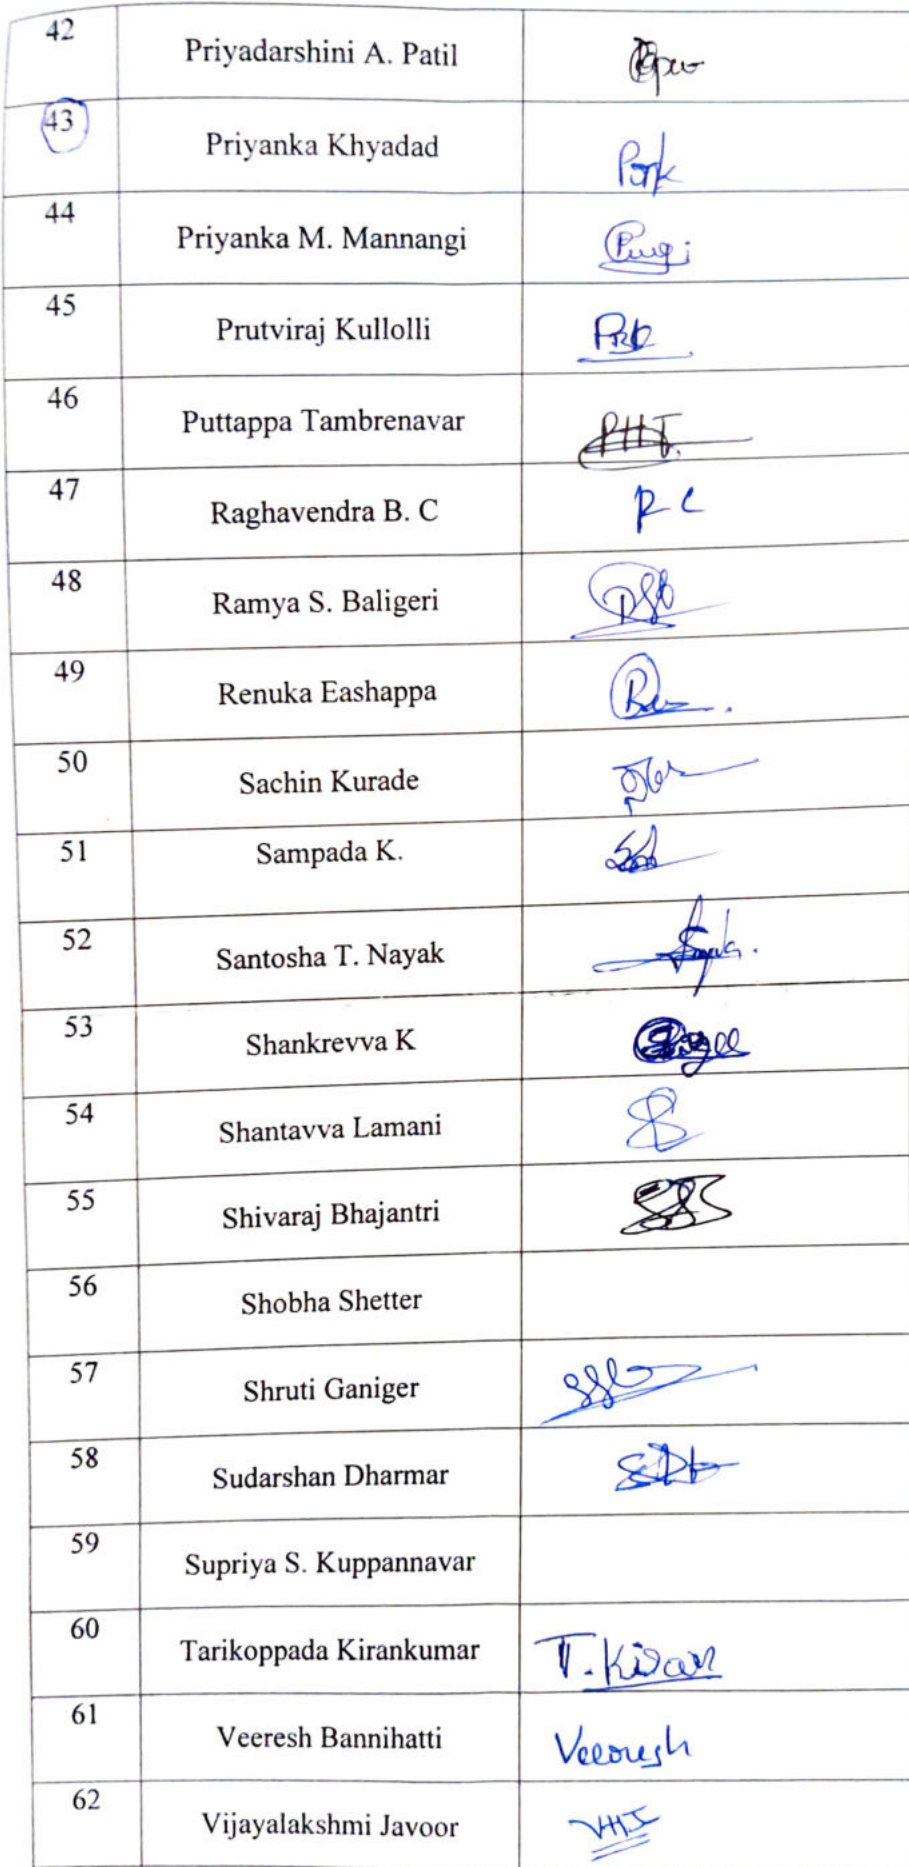 42 Priyadarshini A. Patil
43 Priyanka Khyadad
44 Priyanka M. Mannangi
45 Prutviraj Kullolli
46 Puttappa Tambrenavar PHT.
47 Raghavendra B. C R C
48 Ramya S. Baligeri
49 Renuka Eashappa
50 Sachin Kurade
51 Sampada K.
52 Santosha T. Nayak
53 Shankrevva K
54 Shantavva Lamani
55 Shivaraj Bhajantri
56 Shobha Shetter
57 Shruti Ganiger
58 Sudarshan Dharmar
59 Supriya S. Kuppannavar
60 Tarikoppada Kirankumar T. Kiran
61 Veeresh Bannihatti Veeresh
62 Vijayalakshmi Javoor